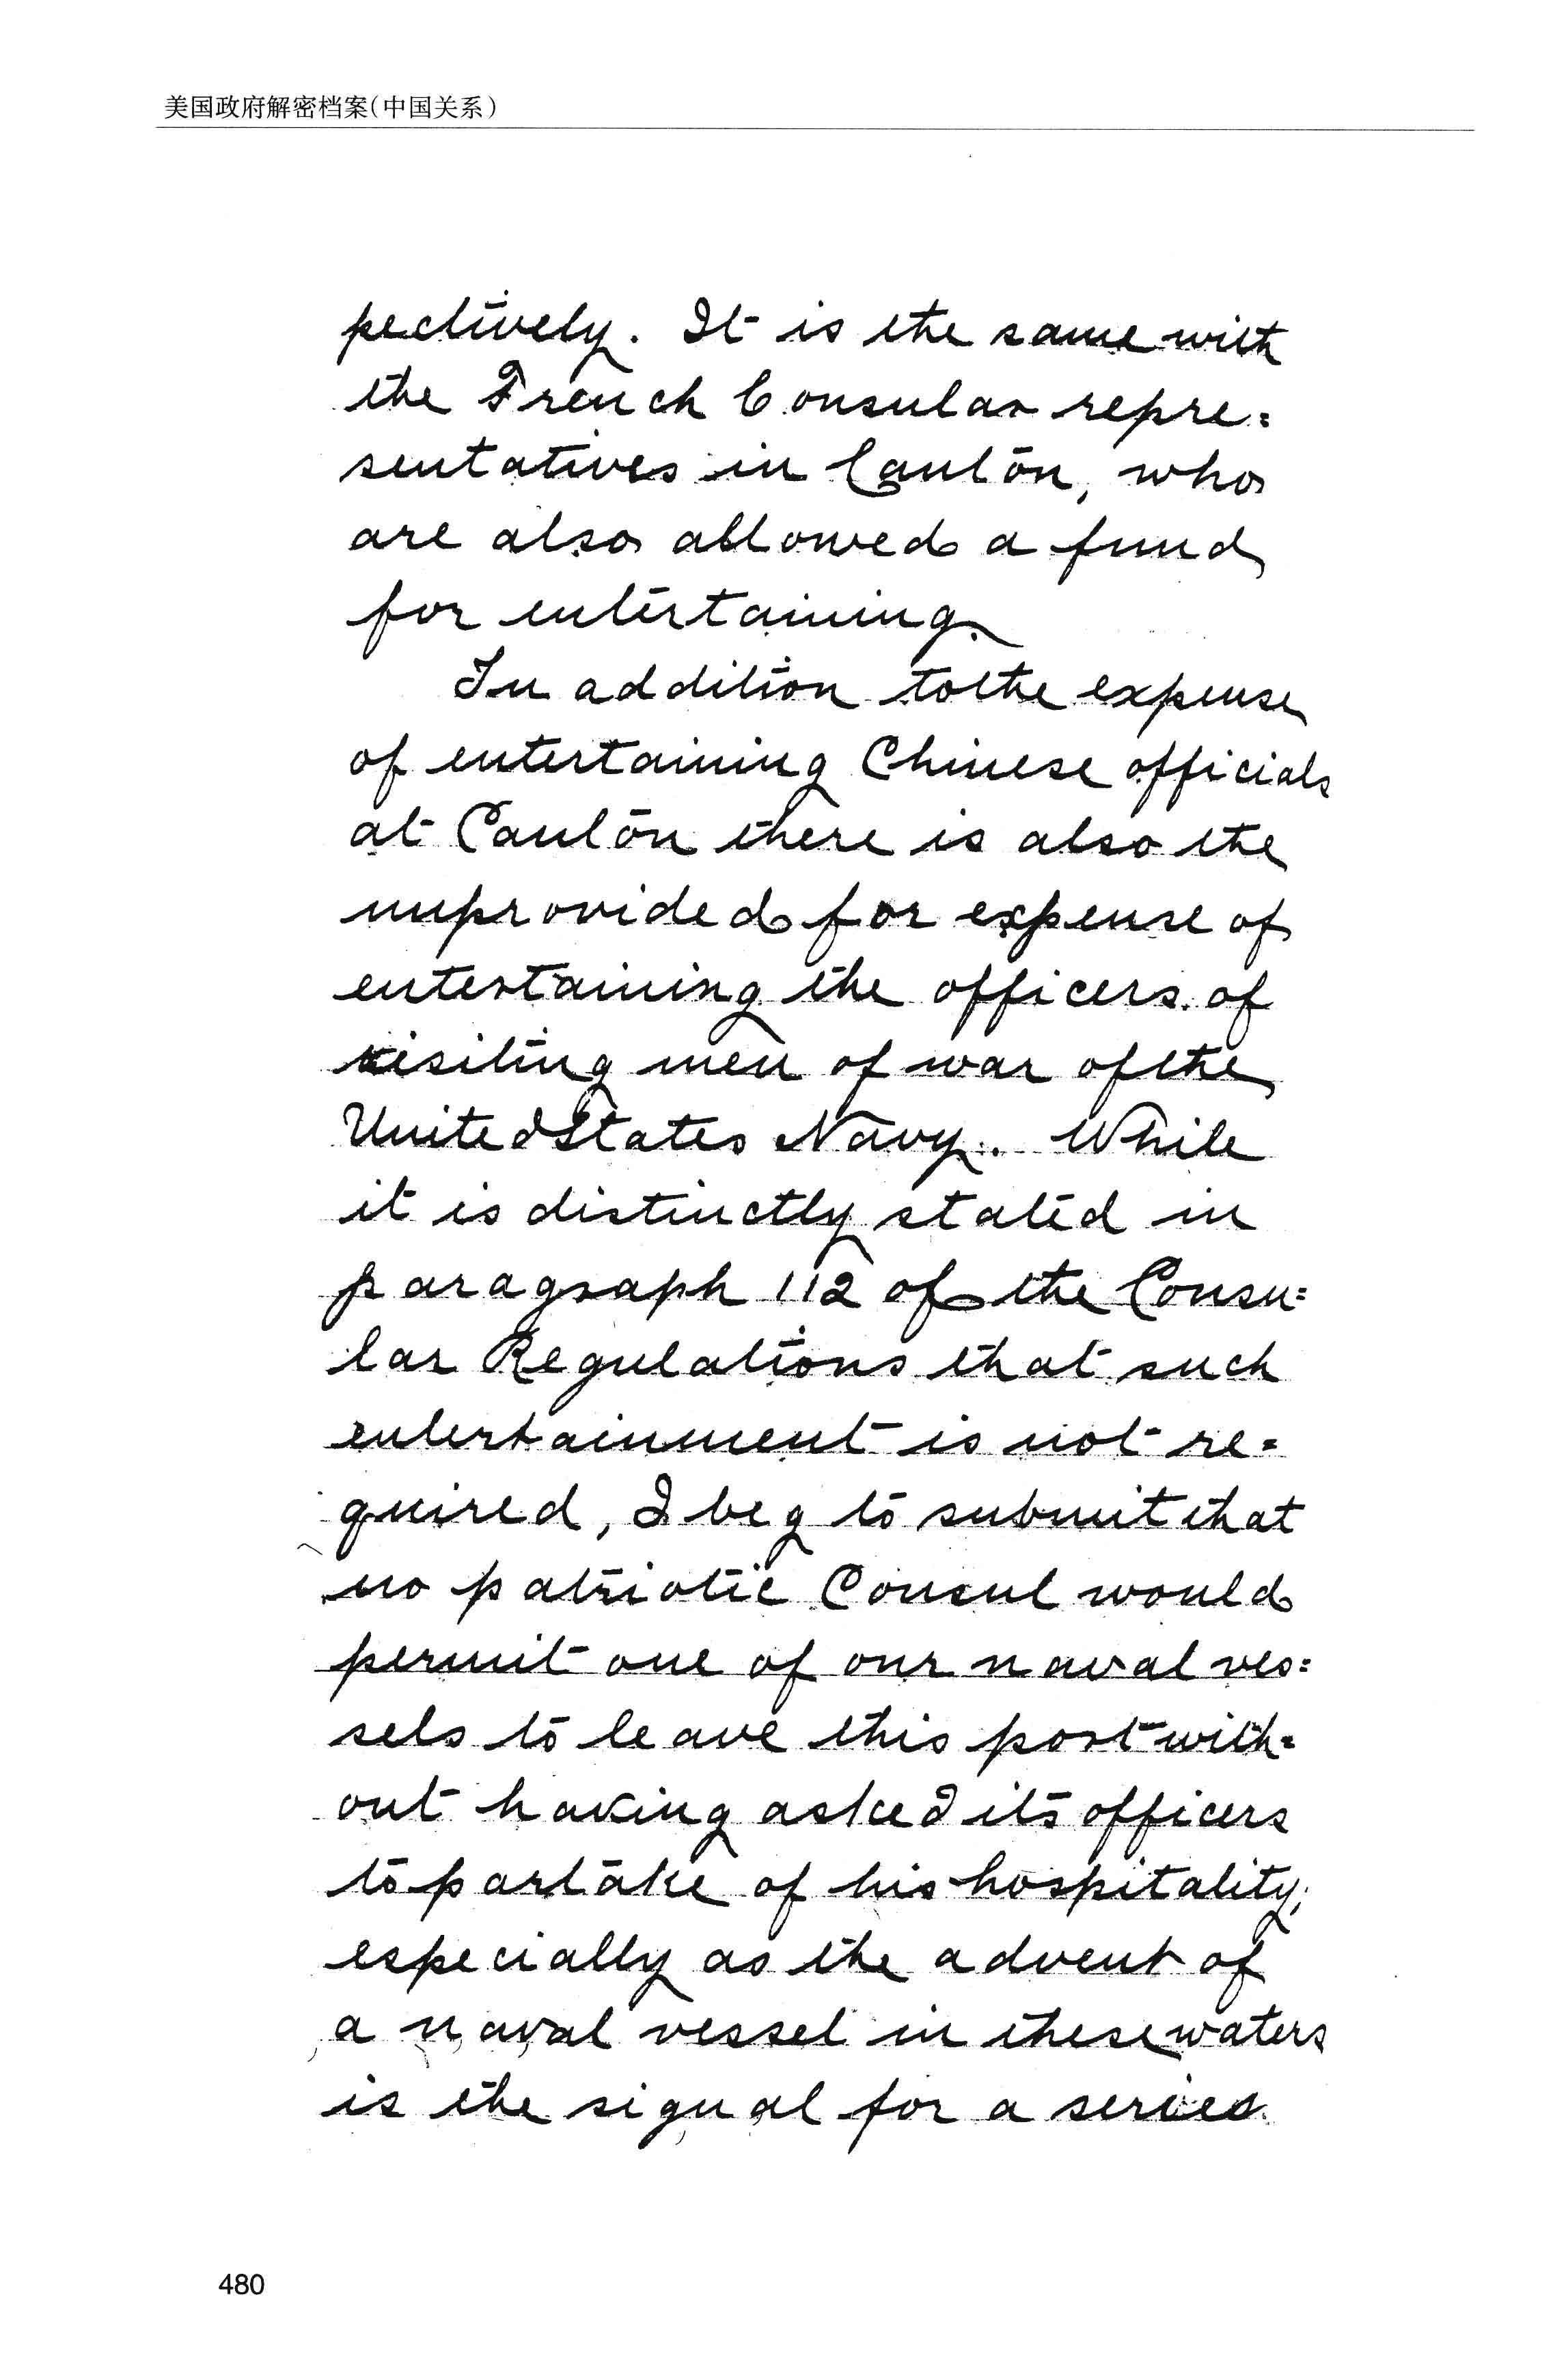 美国政府解密档案(中国关系)
pectively. It is the same with
the French Consular repre=
sentatives in Canton, who
are also allowed a fund
for entertaining.
In addition to the expense
of entertaining Chinese officials
at Canton there is also the
unprovided for expense of
entertaining the officers of
visiting men of war of the
United States Navy. While
it is distinctly stated in
paragraph 112 of the Consu=
lar Regulations that such
entertainment is not re=
quired, I beg to submit that
no patriotic Consul would
permit one of our naval ves=
sels to leave this port with=
out having asked its officers
to partake of his hospitality,
especially as the advent of
a naval vessel in these waters
is the signal for a series
480